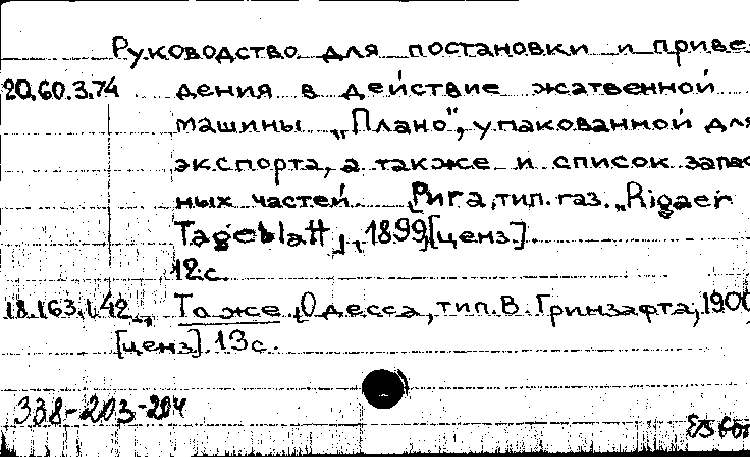 Руководство для постановки и приве-
20.60.3.74 дения в действие жатвенной
машины „Плано", упакованной для
экспорта, а также и список запас
ных частей. [Рига, тип. газ. „Rigaer
Tageblatt", 1899, [ценз.].
12 с.
18.163.1.42 То же [Одесса, тип. В. Гринзафта, 190
[ценз]. 13 с.
338-203-204